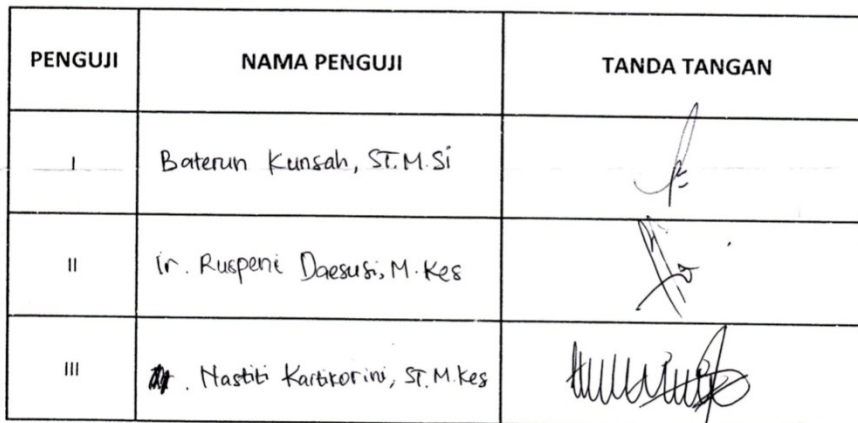 PENGUJI NAMA PENGUJI TANDA TANGAN
I Baterun Kunsah, ST.M.Si
II Ir. Ruspeni Daesusi, M.Kes
III . Nastiti Kartikorini, ST.M.Kes